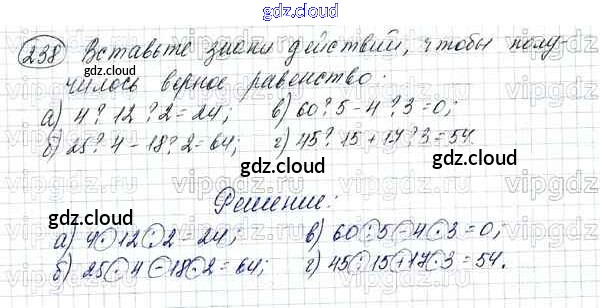 gdz.cloud
238 Вставьте знаки действий, чтобы полу-
чилось верное равенство.
gdz.cloud
а) 4 ? 12 ? 2 = 24; в) 60 ? 5 - 4 ? 3 = 0;
б) 25 ? 4 - 18 ? 2 = 64; г) 45 ? 15 + 17 ? 3 = 54.
gdz.cloud gdz.cloud
vipgdz.ru vipgdz.ru vipgdz
Решение:
gdz.cloud gdz.cloud
а) 4 · 12 : 2 = 24; в) 60 : 5 - 4 · 3 = 0;
б) 25 · 4 - 18 · 2 = 64; г) 45 : 15 + 17 · 3 = 54.
gdz.cloud gdz.cloud